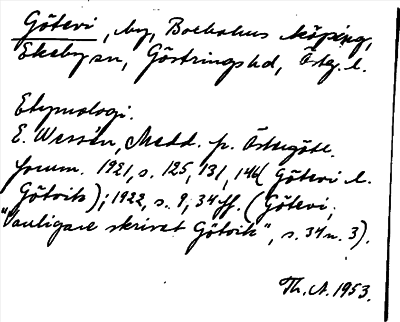 Götevi, by, Boeholms köping,
Ekeby sn, Göstrings hd, Östg. l.
Etymologi.
E. Wessén, Medd. fr. Östergötl.
fornm. 1921, s. 125, 131, 146 (Götevi l.
Götvits); 1922, s. 9, 34 ff. (Götevi,
"vanligare skrivet Götvik", s. 34 n. 3).
Th. A. 1953.